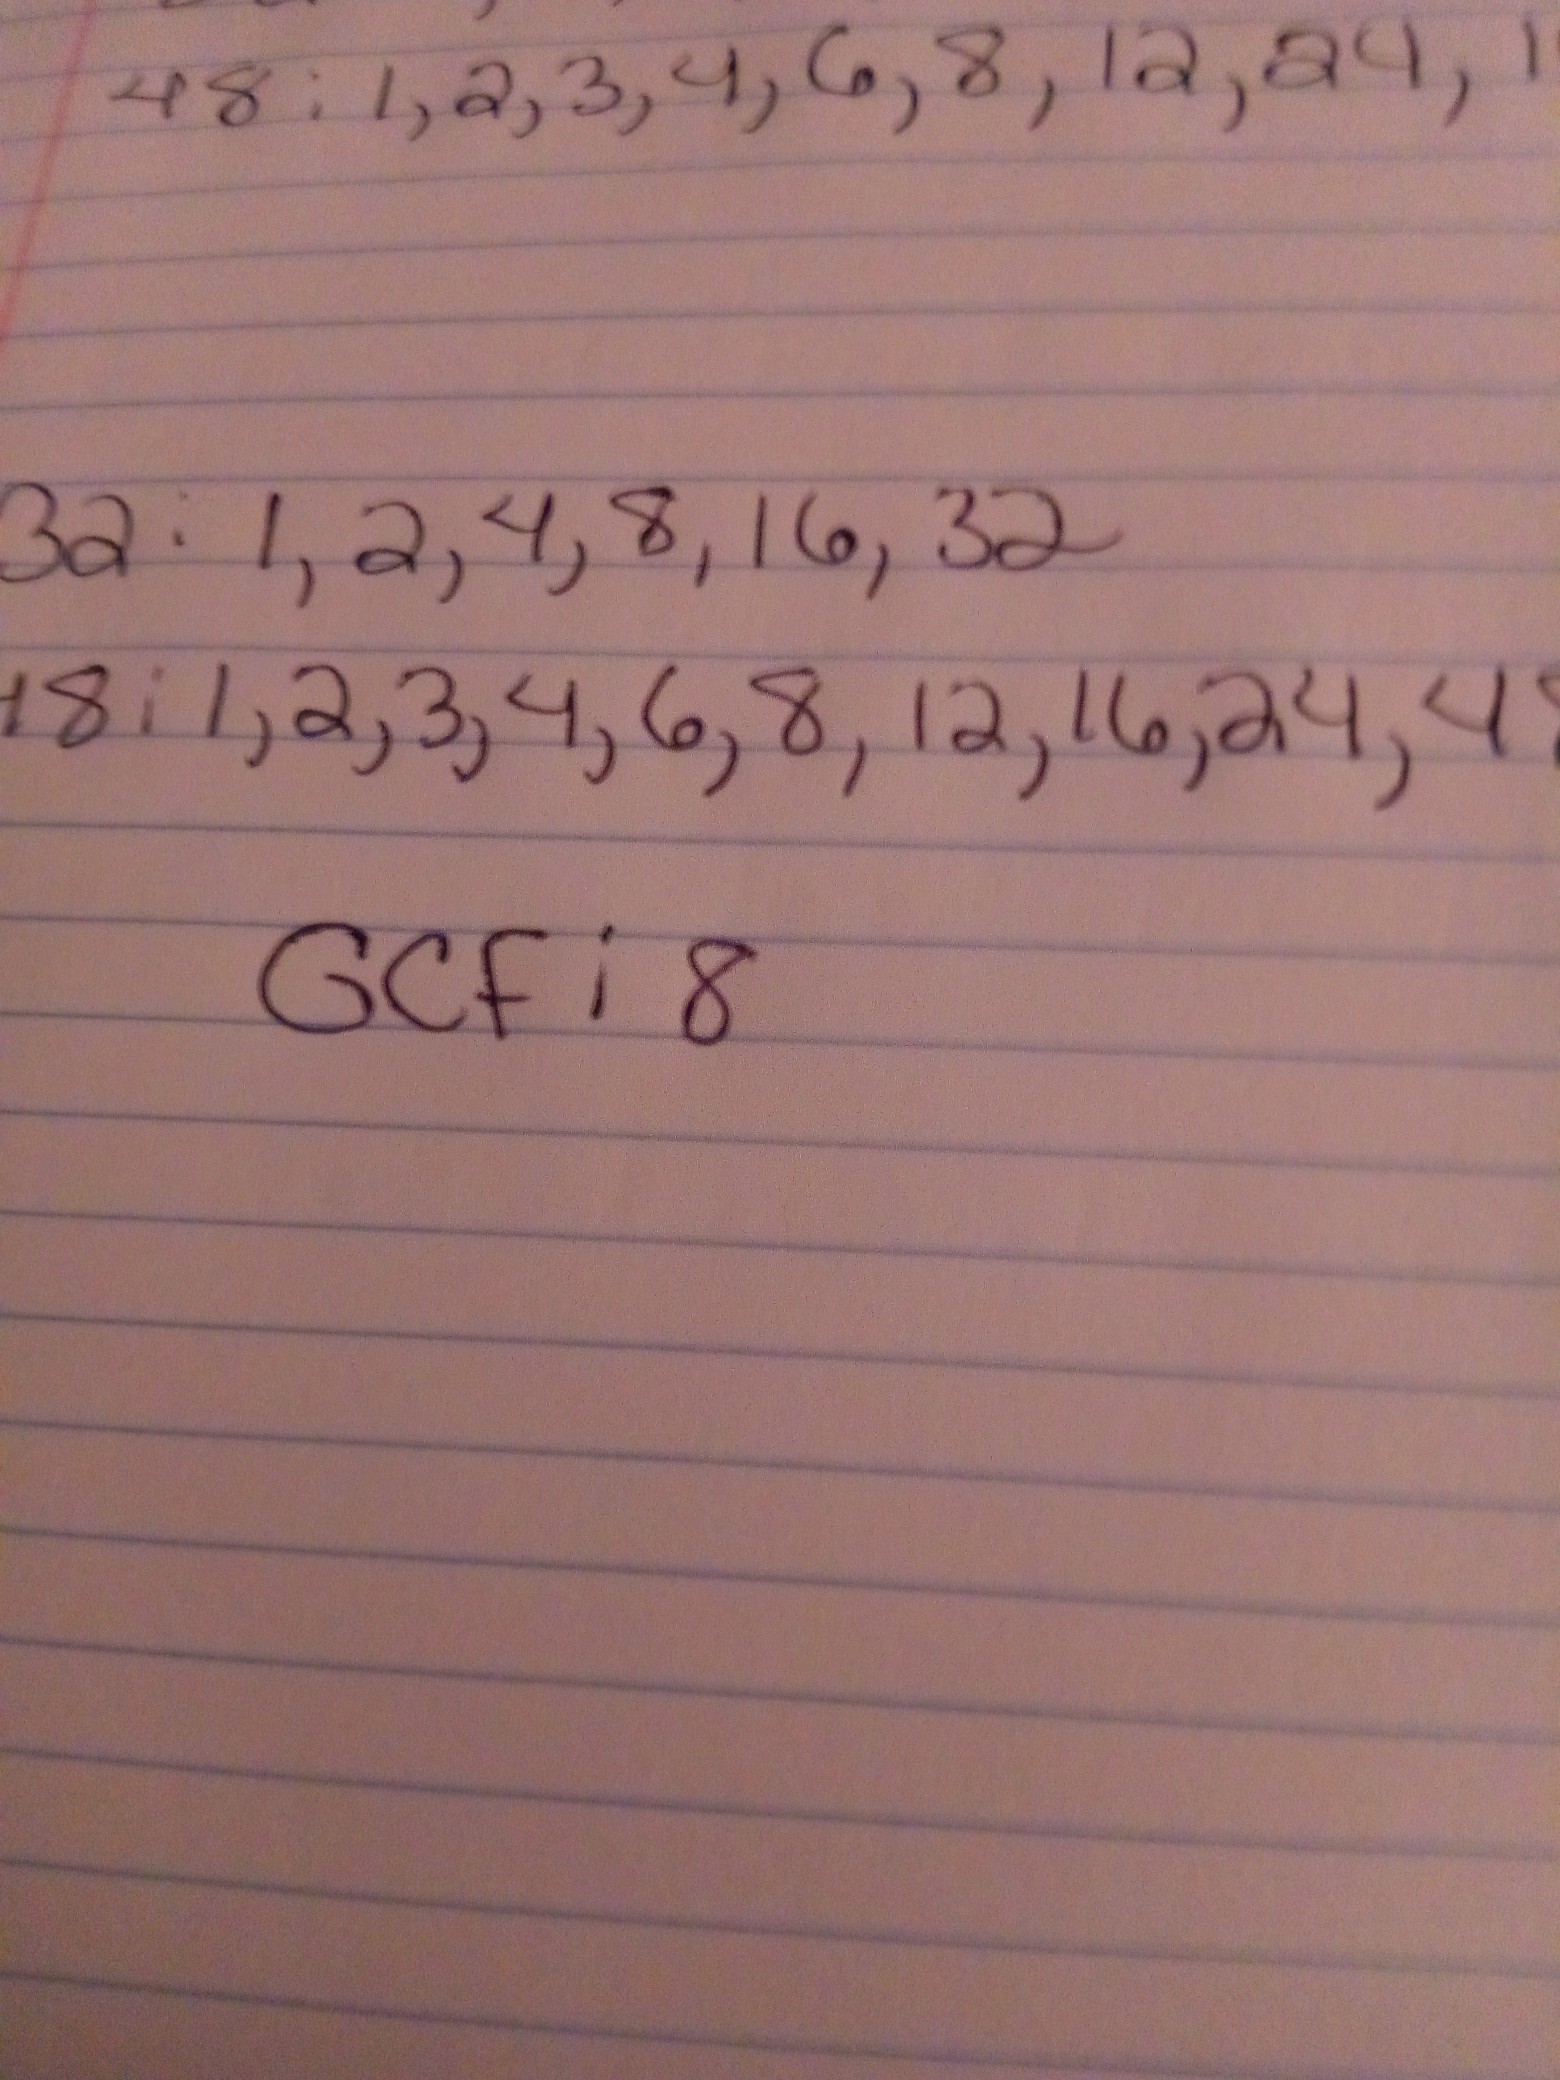 48: 1, 2, 3, 4, 6, 8, 12, 24,
32: 1, 2, 4, 8, 16, 32
48: 1, 2, 3, 4, 6, 8, 12, 16, 24, 48
GCF: 8